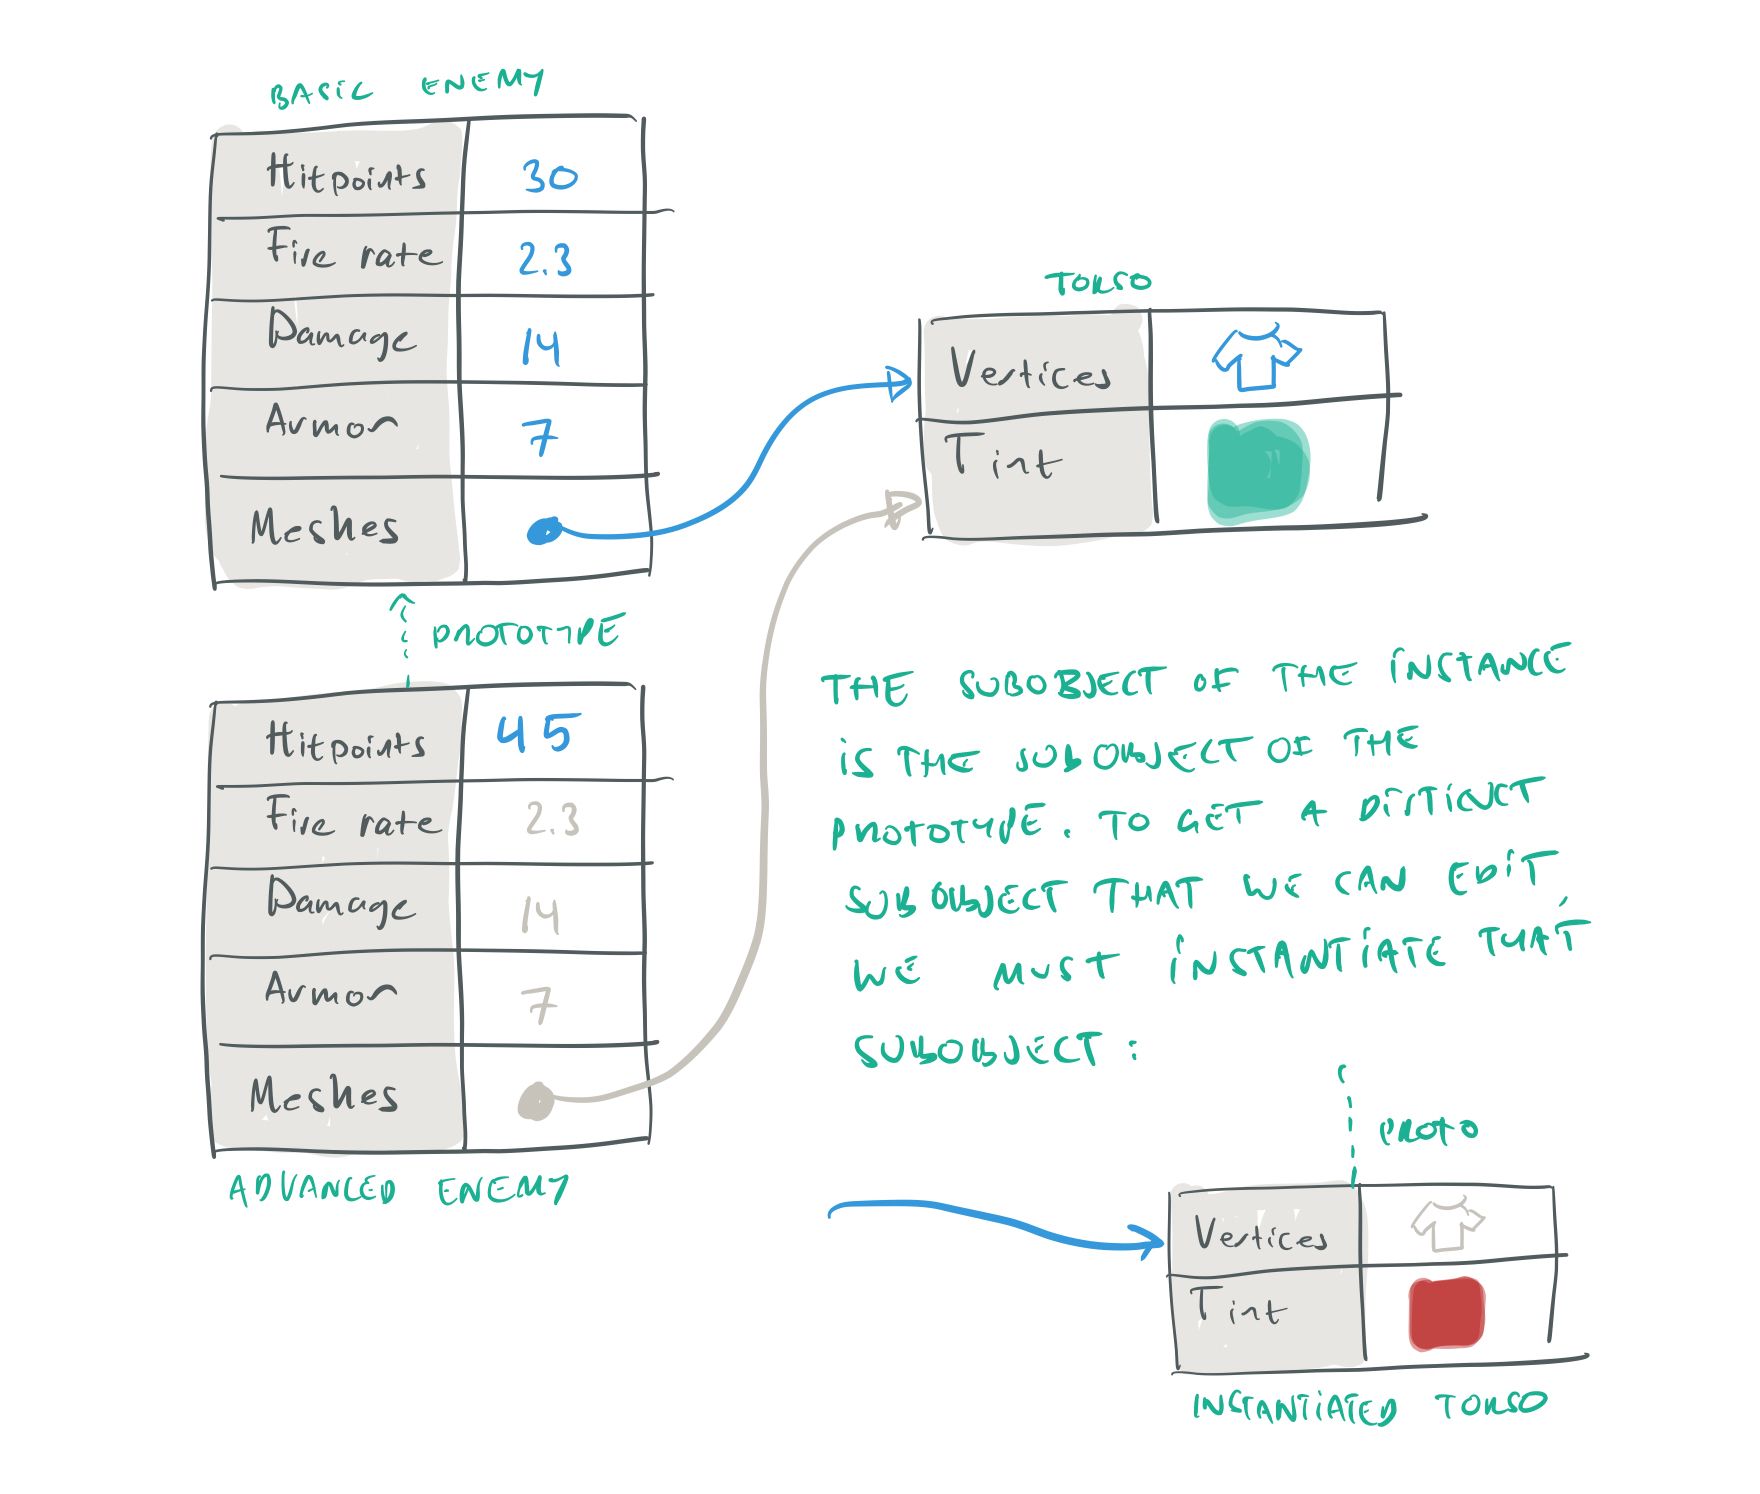 BASIC ENEMY
Hitpoints 30
Fire rate 2.3
Damage 14
Armor 7
Meshes
PROTOTYPE
Hitpoints 45
Fire rate 2.3
Damage 14
Armor 7
Meshes
ADVANCED ENEMY
TORSO
Vertices
Tint
THE SUBOBJECT OF THE INSTANCE
IS THE SUBOBJECT OF THE
PROTOTYPE. TO GET A DISTINCT
SUBOBJECT THAT WE CAN EDIT,
WE MUST INSTANTIATE THAT
SUBOBJECT:
PROTO
Vertices
Tint
INSTANTIATED TORSO